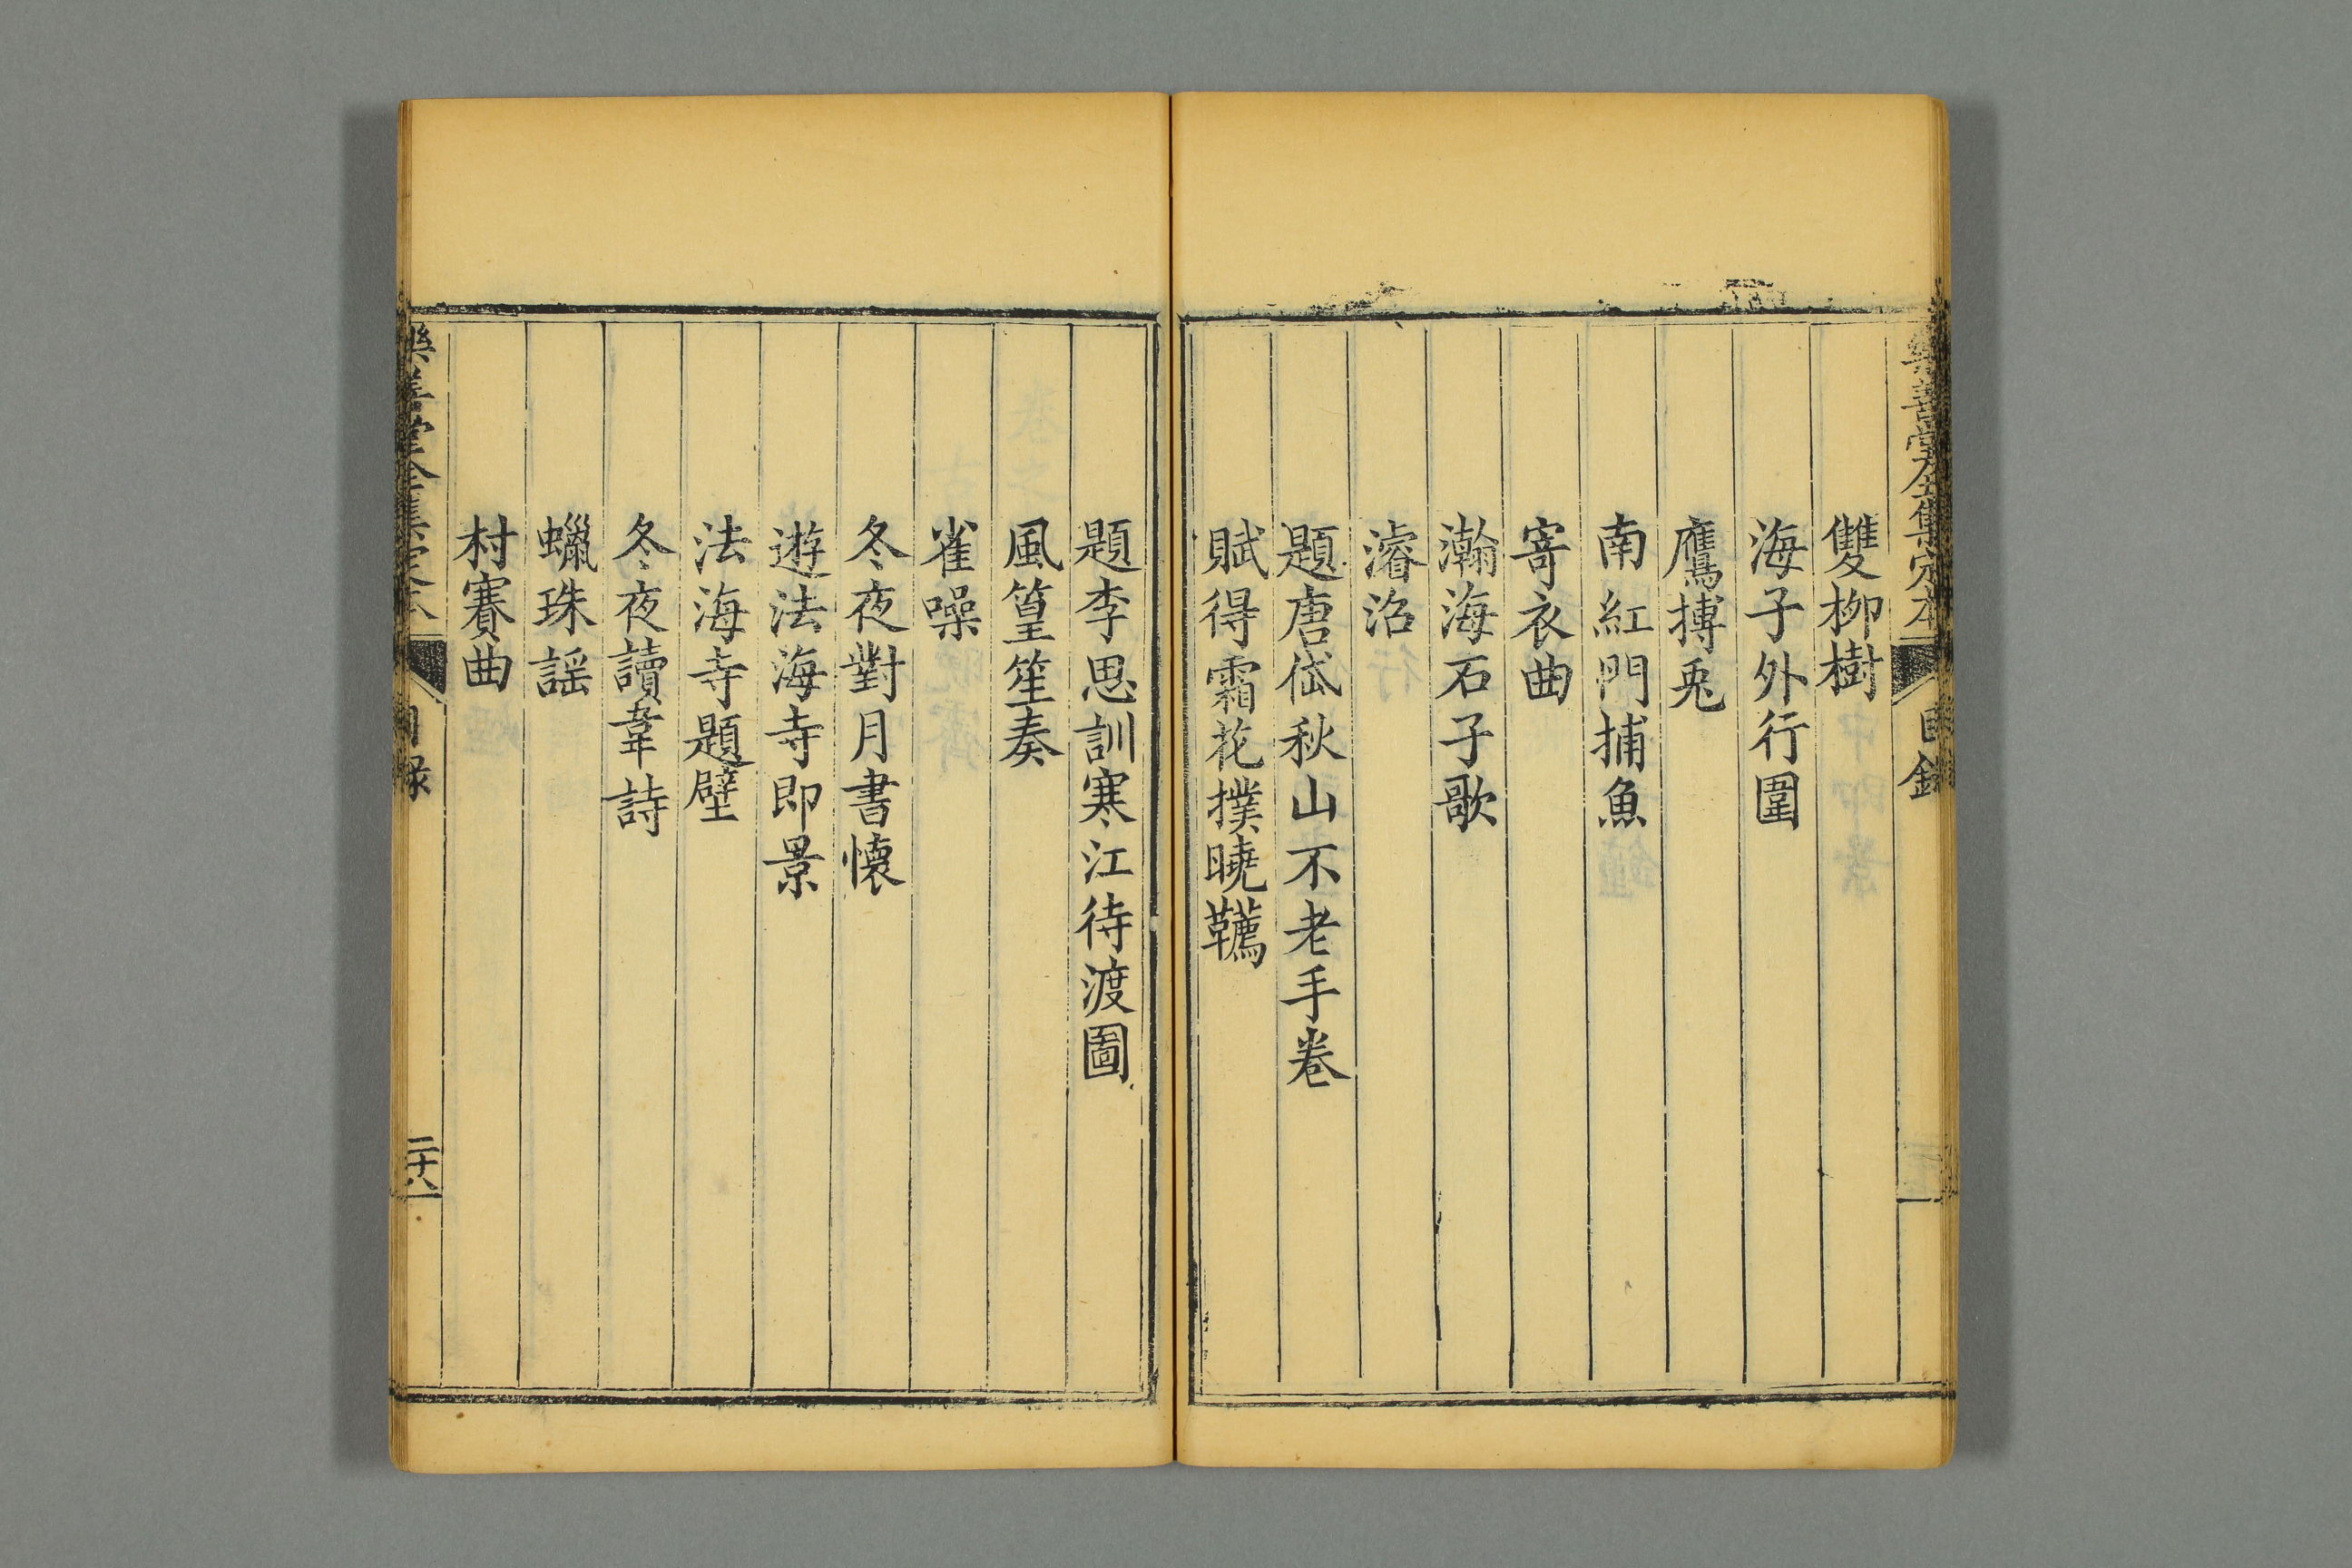 樂善堂全集定本
目錄
雙栁樹
海子外行圍
鷹搏兎
南紅門捕魚
寄衣曲
瀚海石子歌
濬沿
題唐岱秋山不老手卷
賦得霜花撲曉韉
題李思訓寒江待渡圖
風篁笙奏
雀噪
冬夜對月書懷
遊法海寺即景
法海寺題壁
冬夜讀韋詩
蠟珠謡
村賽曲
樂善堂全集定本
目錄
二十八